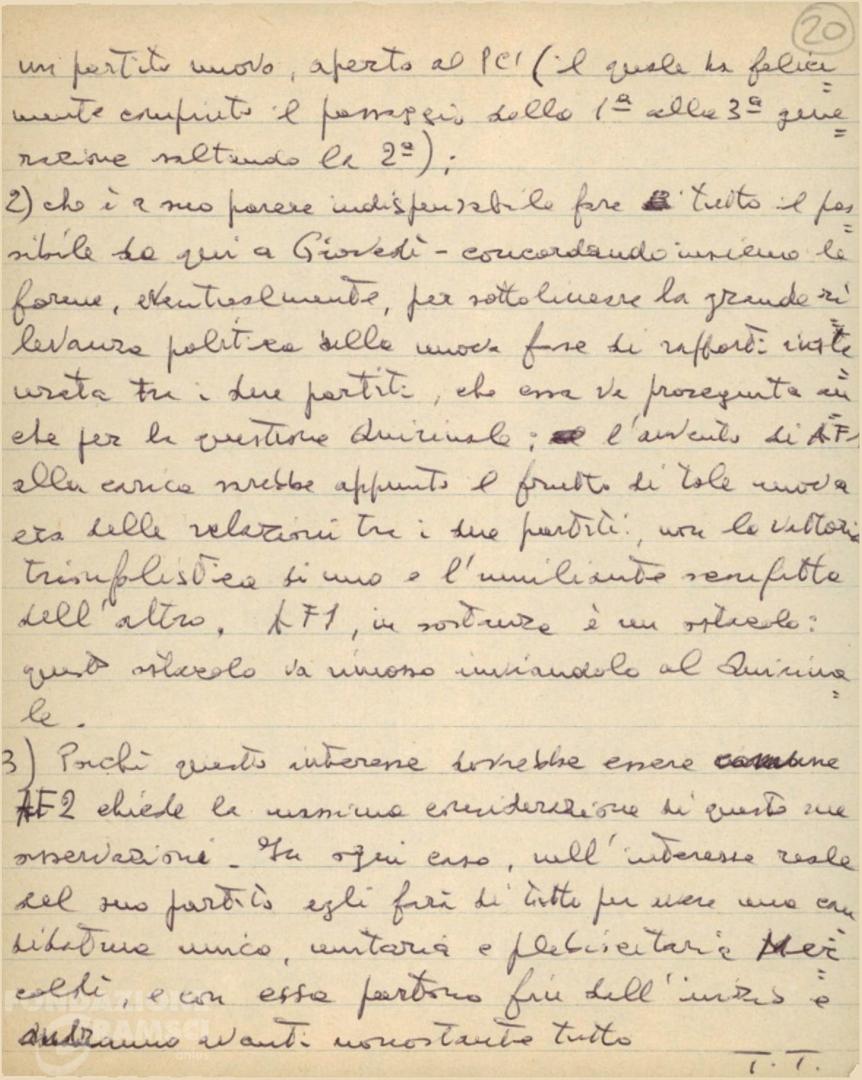 20
un partito nuovo, aperto al PCI (il quale ha felice=
mente compiuto il passaggio dalla 1ª alla 3ª gene=
razione saltando la 2ª);
2) che è a suo parere indispensabile fare tutto il pos=
sibile da qui a Giovedì - concordando insieme le
forme, eventualmente, per sottolineare la grande ri=
levanza politica della nuova fase di rapporti instau=
rata tra i due partiti, che essa va proseguita an=
che per la questione Quirinale; l'avvento di AF1
alla carica sarebbe appunto il frutto di tale nuova
era delle relazioni tra i due partiti, non la vittoria
trionfalistica di uno e l'umiliante sconfitta
dell'altro. AF1, in sostanza è un ostacolo:
questo ostacolo va rimosso inviandolo al Quirina=
le.
3) Poiché questo interesse dovrebbe essere comune
AF2 chiede la massima considerazione di queste sue
osservazioni. In ogni caso, nell'interesse reale
del suo partito egli farà di tutto per avere una can=
didatura unica, unitaria e plebiscitaria Mer=
coldì, e con essa partono fin dall'inizio e
andranno avanti nonostante tutto
T.T.
FONDAZIONE
GRAMSCI
onlus